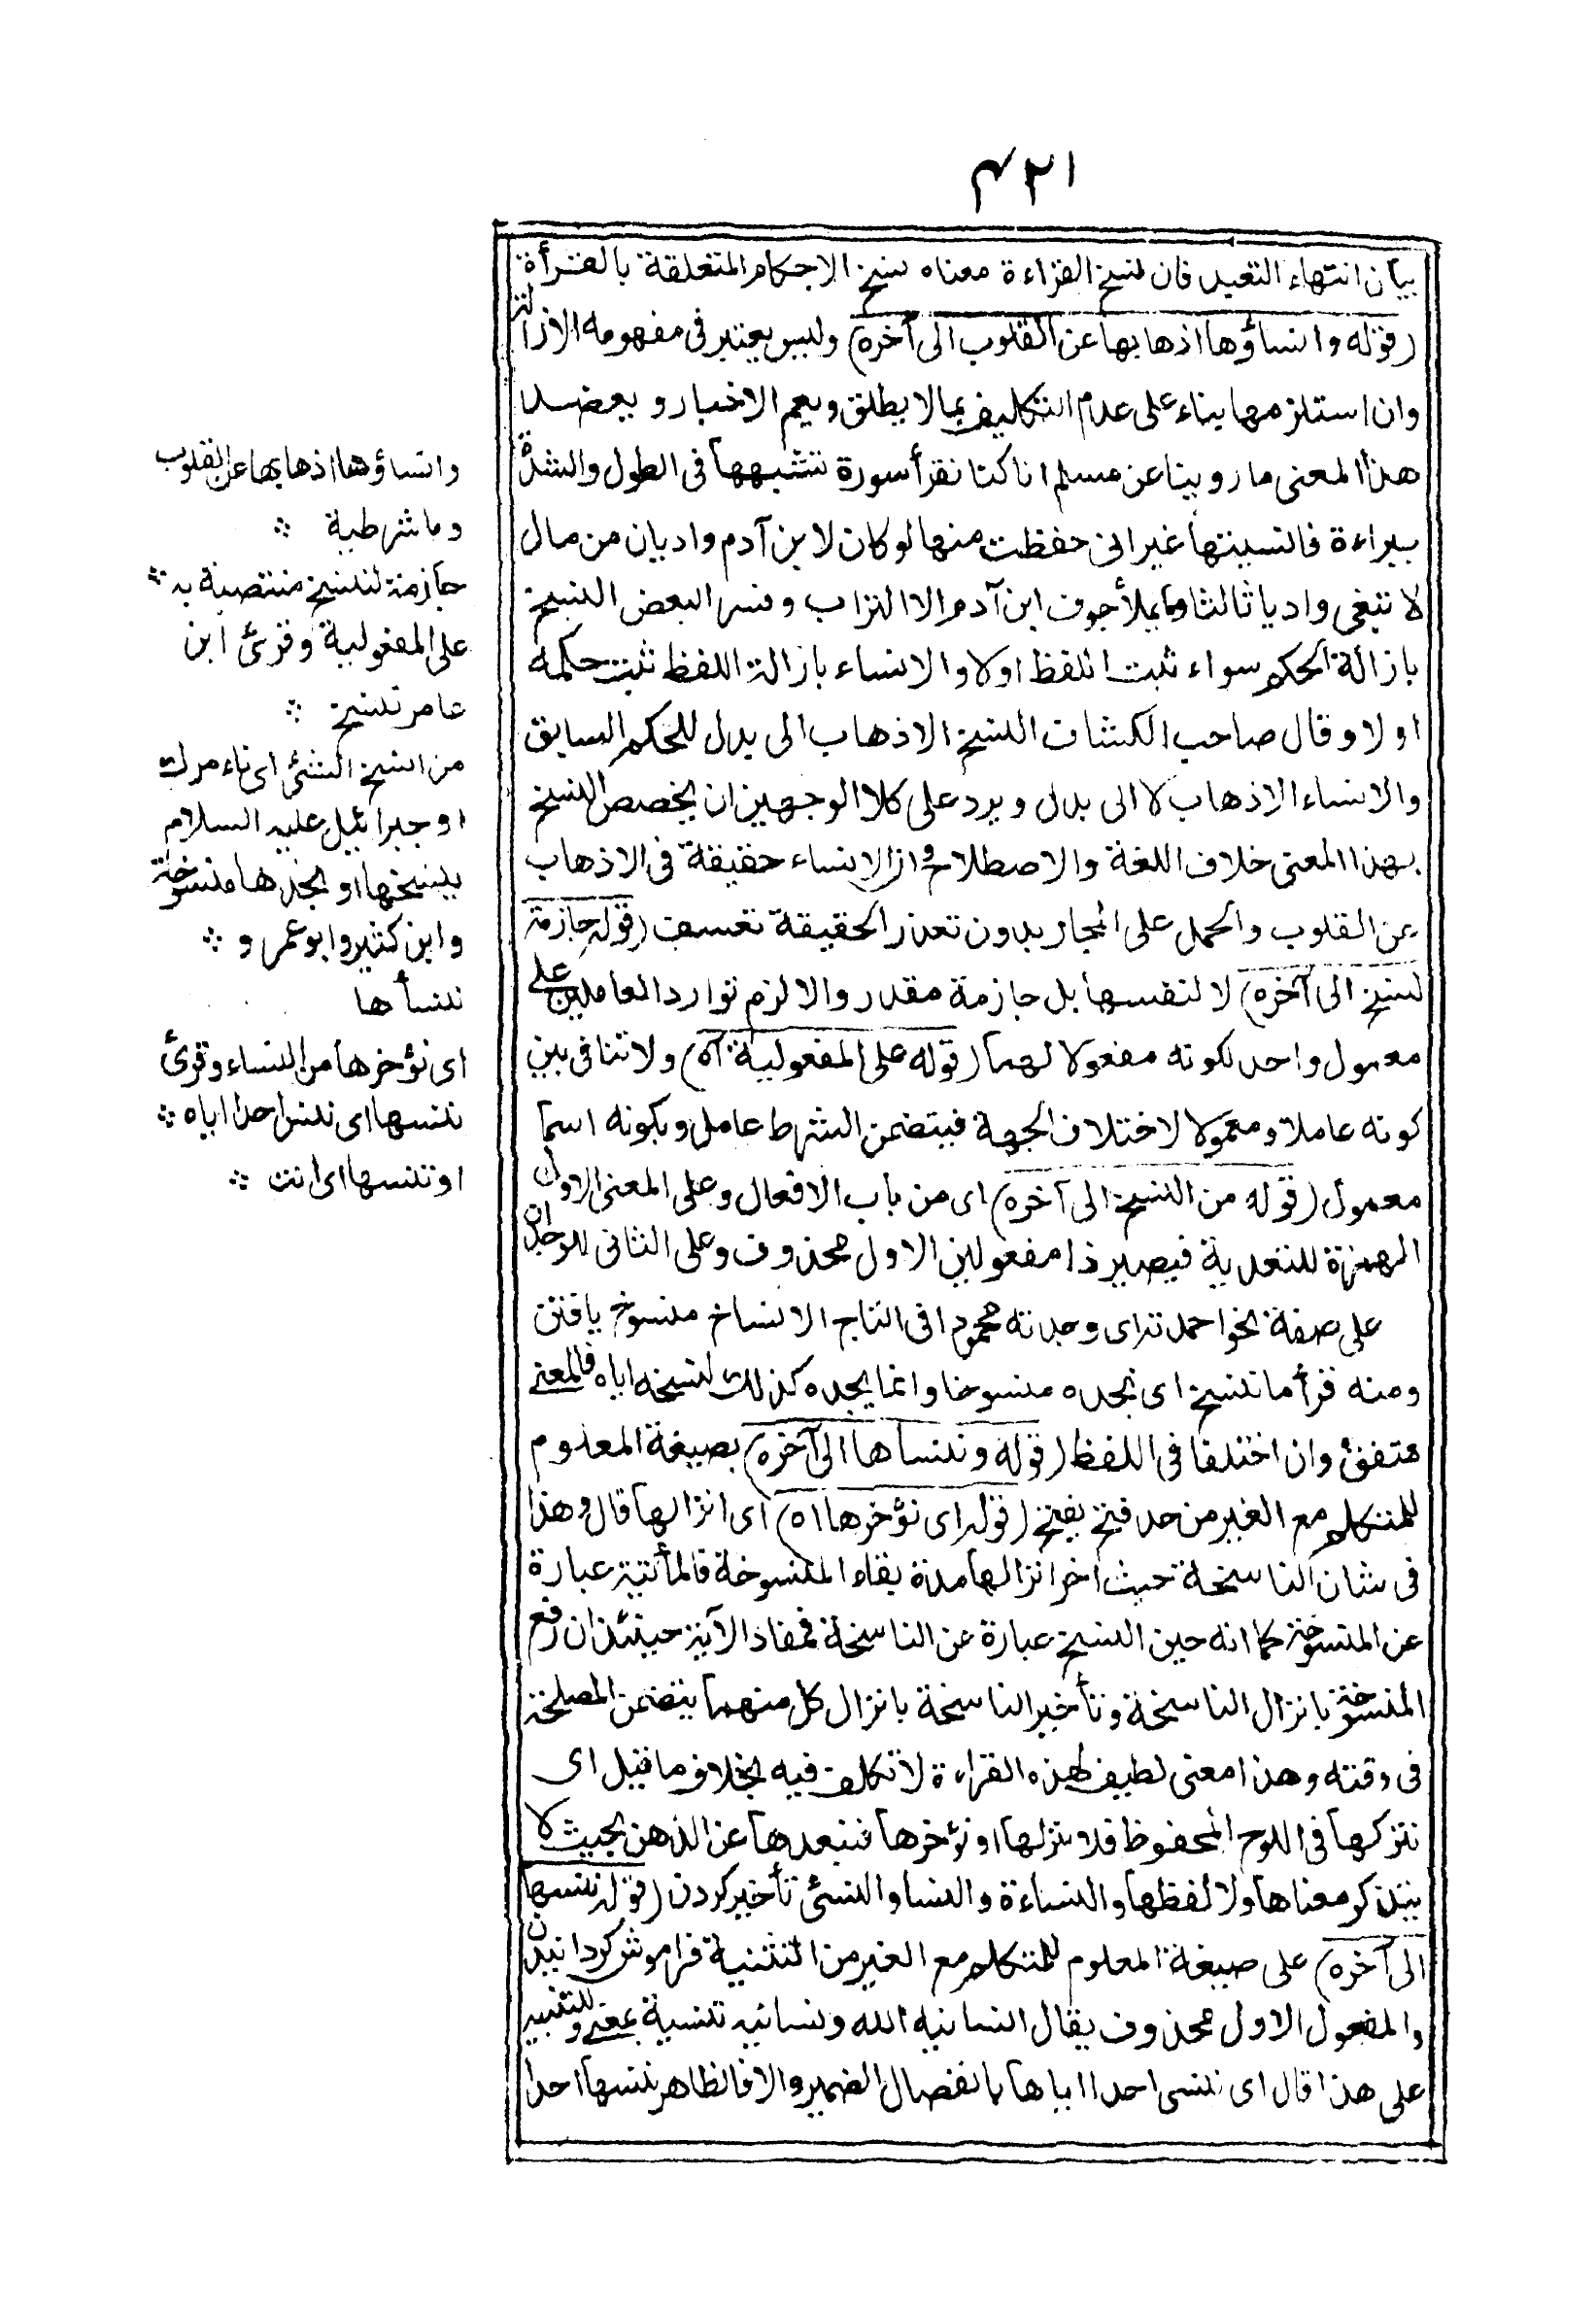 ٤٢١
بيان انتهاء التعبد فان نسخ القراءة معناه نسخ الاحكام المتعلقة بالقرأة
(قوله وانساؤها اذهابها عن القلوب الى آخره) وليس يعتبر فى مفهومه الازالة
وان استلزمها بناء على عدم التكليف بما لا يطلق ويعم الاخبار ويعضد
هذا المعنى ما روينا عن مسلم انا كنا نقرأ سورة نشبهها فى الطول والشدة
ببراءة فانسيتها غير انى حفظت منها لو كان لابن آدم واديان من مال
لا نتبغى واديا ثالثا وما يملأ جوف ابن آدم الا التراب وفسر البعض النسخ
بازالة الحكم سواء ثبت اللفظ اولا والانساء بازالة اللفظ ثبت حكمه
اولا وقال صاحب الكشاف النسخ الاذهاب الى بدل للحكم السابق
والانساء الاذهاب لا الى بدل ويرد على كلا الوجهين ان يخصص النسخ
بهذا المعنى خلاف اللغة والاصطلاح وان الانساء حقيقة فى الاذهاب
عن القلوب والحمل على المجاز بدون تعذر الحقيقة تعسف (قوله جازمة
لننسخ الى آخره) لا لنفسها بل جازمة مقدر والا لزم توارد العاملين على
معمول واحد لكونه مفعولا لهما (قوله على المفعولية آه) ولا تنافى بين
كونه عاملا ومعمولا لاختلاف الجهة فبتضمن الشرط عامل وبكونه اسما
معمول (قوله من النسخ الى آخره) اى من باب الافعال وعلى المعنى الاول
الهمزة للتعدية فيصير ذا مفعولين الاول محذوف وعلى الثانى للوجدان
على صفة نحو احمدته اى وجدته محمودا فى التاج الانساخ منسوخ يافتن
ومنه قرأ ما ننسخ اى نجده منسوخا وانما يجده كذلك لنسخه اياه فالمعنى
متفق وان اختلفا فى اللفظ (قوله وننسأها الى آخره) بصيغة المعلوم
للمتكلم مع الغير من حد فتح يفتح (قوله اى نؤخرها اه) اى انزالها قال وهذا
فى شان الناسخة حيث اخر انزالها مدة بقاء المنسوخة فالمأتية عبارة
عن المنسوخة كما انه حين النسخ عبارة عن الناسخة فمفاد الآية حينئذ ان رفع
المنسوخة بانزال الناسخة وتأخير الناسخة بانزال كل منهما يتضمن المصلحة
فى وقته وهذا معنى لطيف لهذه القراءة لا تكلف فيه بخلاف ما قيل اى
نتركها فى اللوح المحفوظ فلا ننزلها او نؤخرها فنبعدها عن الذهن بحيث لا
يتذكر معناها ولا لفظها والنساءة والنسا والنسئ تأخير كردن (قوله ننسها
الى آخره) على صيغة المعلوم للمتكلم مع الغير من التنسية فراموش كردانيدن
والمفعول الاول محذوف يقال انسانيه الله ونسانيه تنسية بمعنى وللتنبيه
على هذا قال اى ننسى احدا اياها بانفصال الضمير والا فالظاهر ننسها احدا
وانساؤها اذهابها عن القلوب
وما شرطية
جازمة لننسخ منتصبة به
على المفعولية وقرئ ابن
عامر ننسخ
من انسخ الشئ اى نامرك
او جبرائيل عليه السلام
بنسخها او نجدها منسوخة
وابن كثير وابو عمرو
ننسأها
اى نؤخرها من النساء وقرئ
ننسها اى ننس احدا اياه
او تنسها اى انت